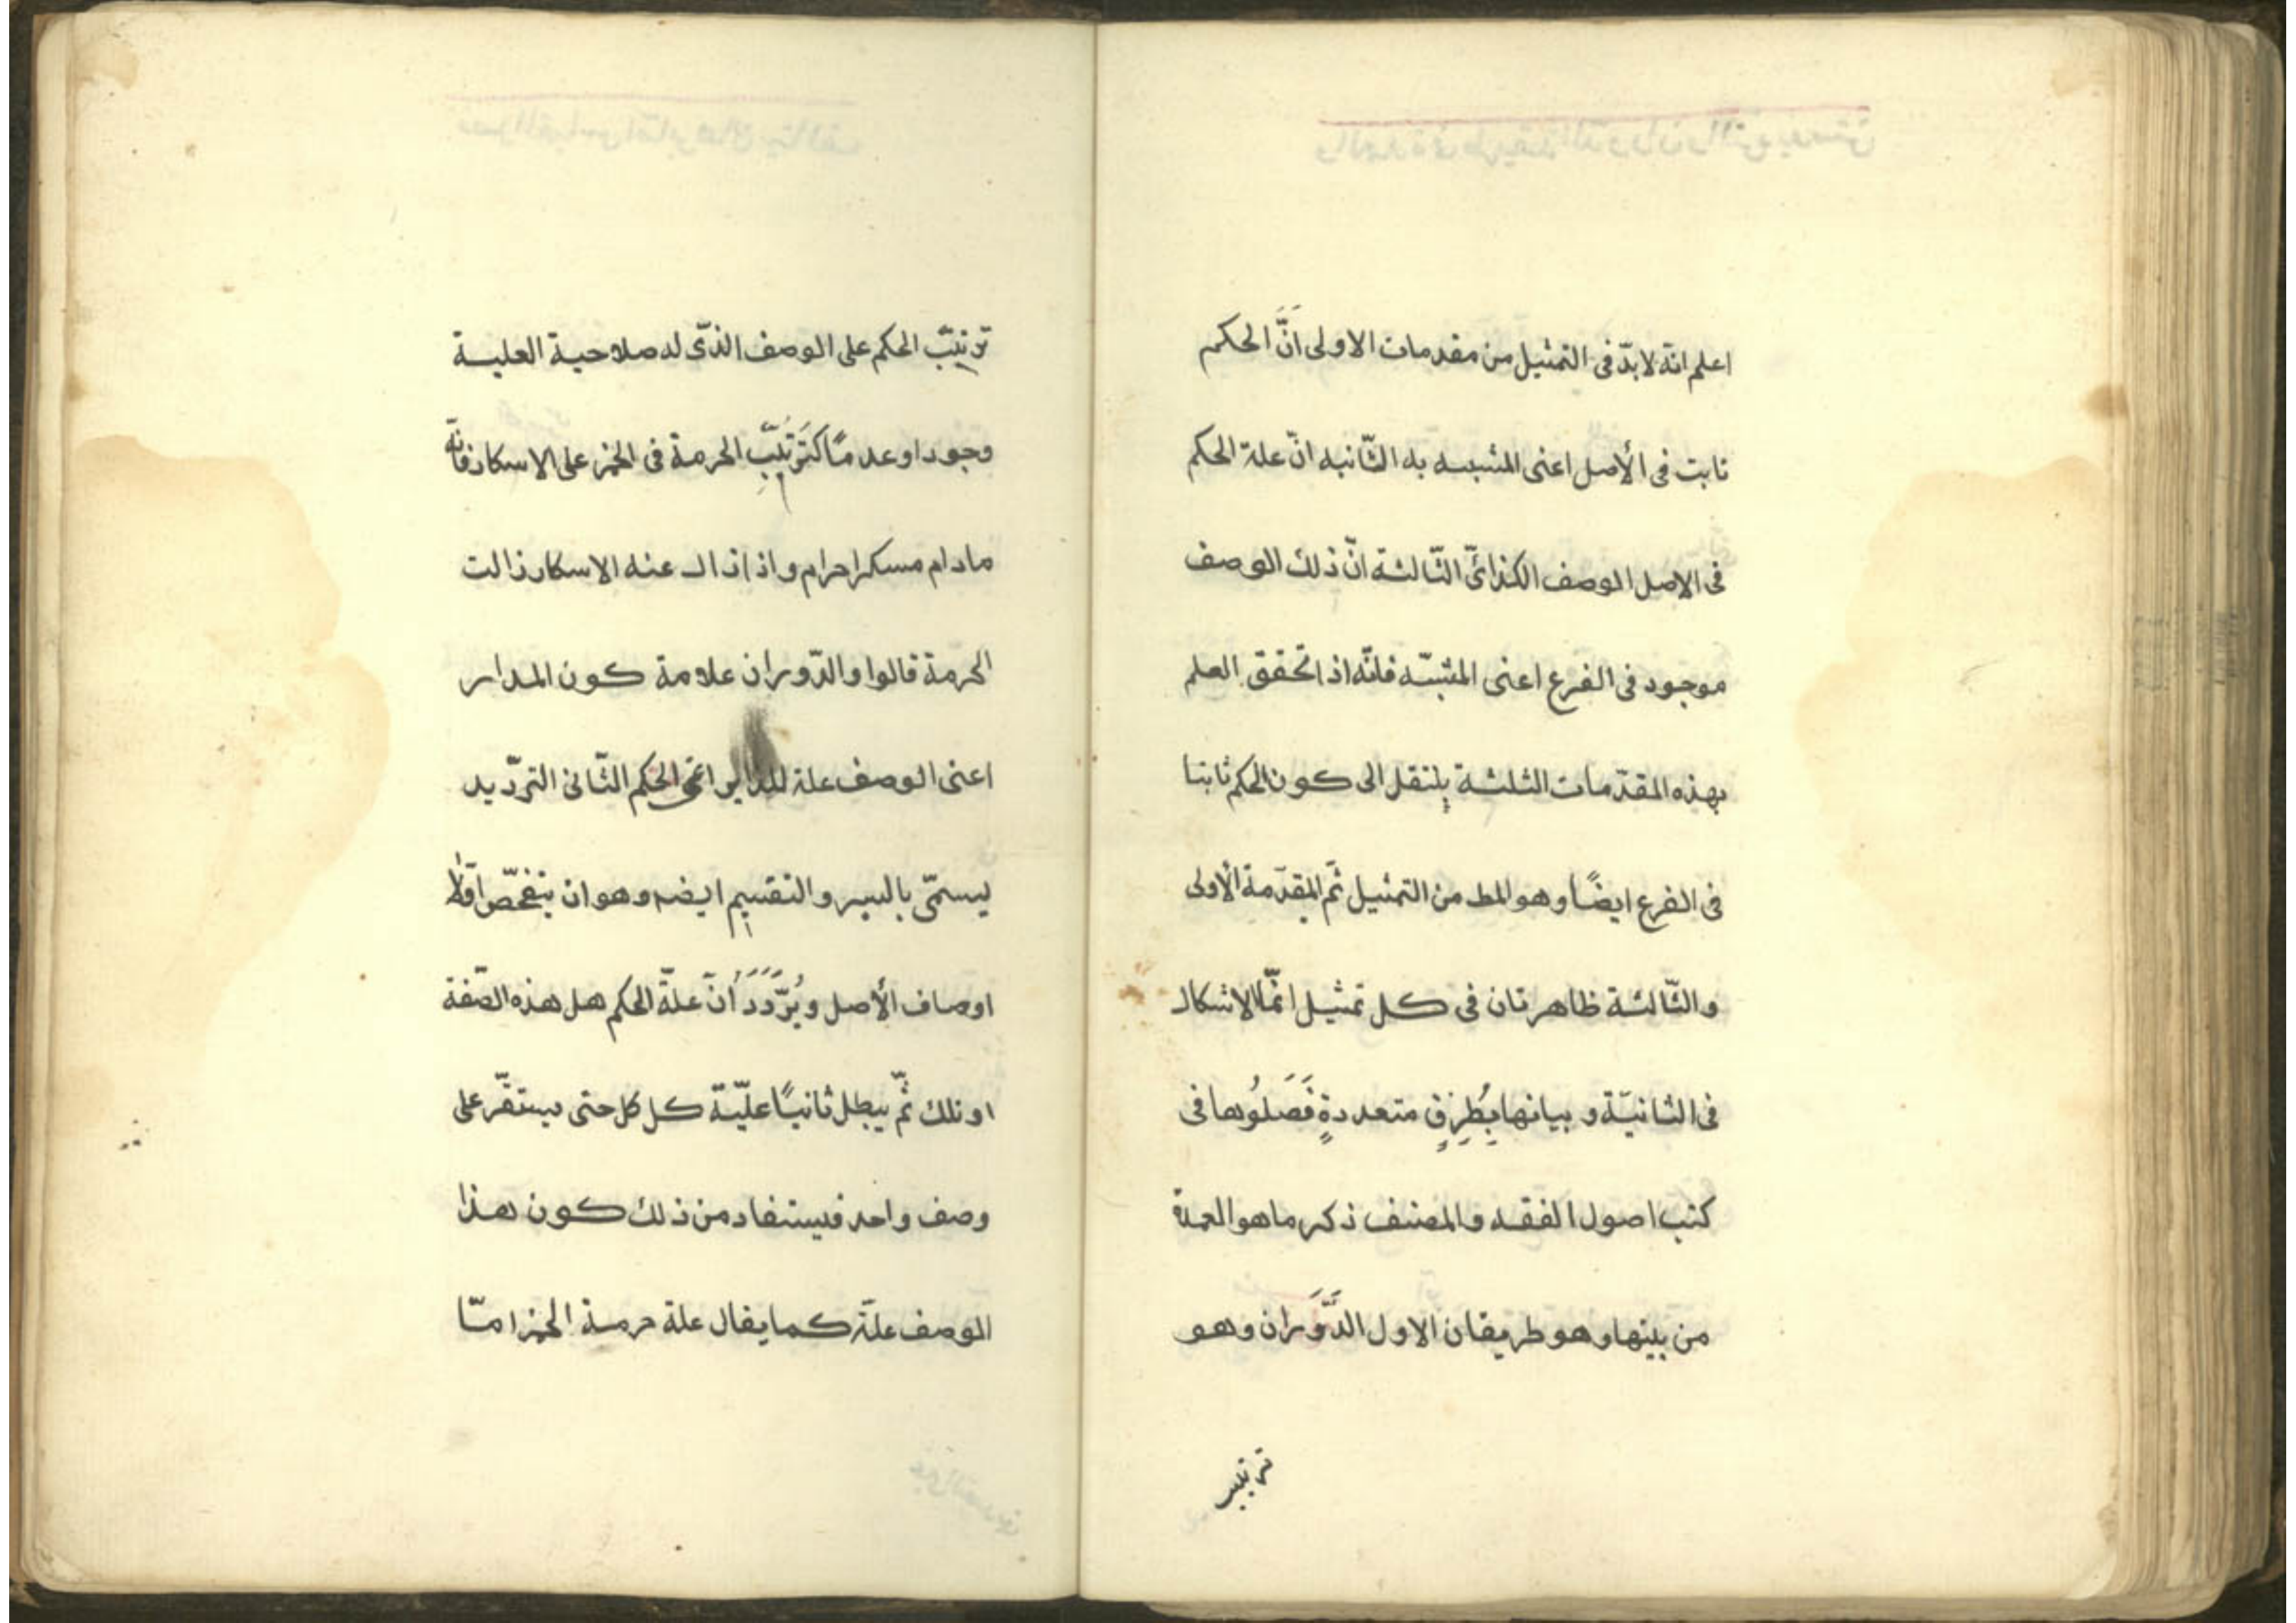 اعلم انّه لا بدّ فى التمثيل من مقدمات الاولى اَنَّ الحكم
ثابت فى الأصل اعنى المشبه به الثّانيه انّ علة الحكم
فى الاصل الوصف الكذائىّ الثّالثة انّ ذلك الوصف
موجود فى الفرع اعنى المشبّه فانّه اذا تحقق العلم
بهذه المقدّمات الثلثة ينتقل الى كون الحكم ثابتا
فى الفرع ايضًا وهو المط من التمثيل ثمّ المقدّمة الأولى
والثّالثة ظاهرتان فى كل تمثيل انّما الاشكال
فى الثانيّة و بيانها بِطُرِقٍ متعددةٍ فَصَلُوها فى
كتب اصول الفقه والمصنف ذكر ما هو العمدة
من بينها وهو طريقان الاول الدَّوَران وهو
ترتيب
ترتيب الحكم على الوصف الذّى له صلاحية العلية
وجودا وعدمًا كتَرَتُّبِ الحرمة فى الخمر على الاسكار فانّه
مادام مسكرا حرام واذا زال عنه الاسكار زالت
الحرمة قالوا والدّوران علامة كون المدار
اعنى الوصف علة للداير اعنى الحكم الثّانى التردّيد
يسمّى بالسبر والتقسيم ايضه وهو ان يتفحّص اوّلا
اوصاف الأصل ويُرَدَّدَ اَنّ علّة الحكم هل هذه الصّفة
او تلك ثمّ يبطل ثانيًا علّيّة كل كل حتى يستقّر على
وصف واحد فيستفاد من ذلك كون هذا
الوصف علّة كما يقال علة حرمة الخمر امّا